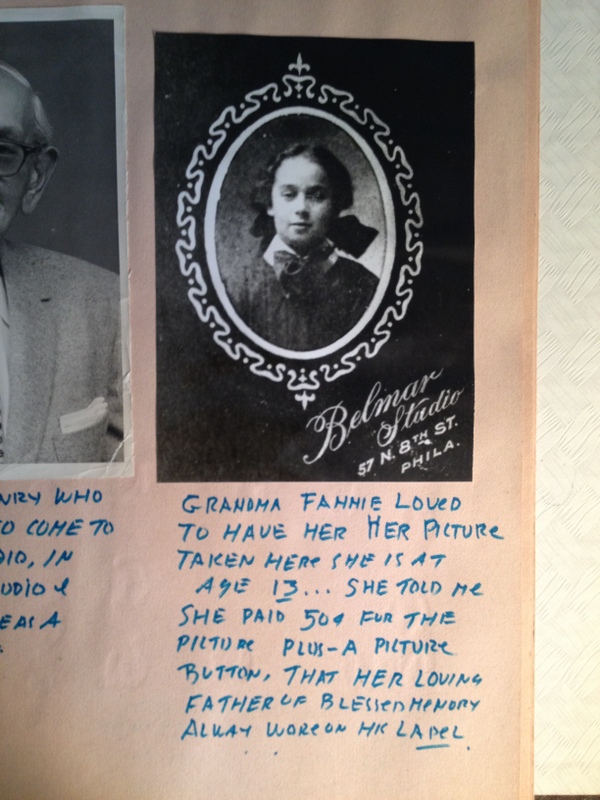 Belmar
Studio
57 N. 8TH ST.
PHILA.
WHO
TO COME TO
IN
AS A
GRANDMA FANNIE LOVED
TO HAVE HER HER PICTURE
TAKEN HERE SHE IS AT
AGE 13... SHE TOLD ME
SHE PAID 50¢ FOR THE
PICTURE PLUS-A PICTURE
BUTTON, THAT HER LOVING
FATHER OF BLESSED MEMORY
ALWAY WORE ON HIS LAPEL